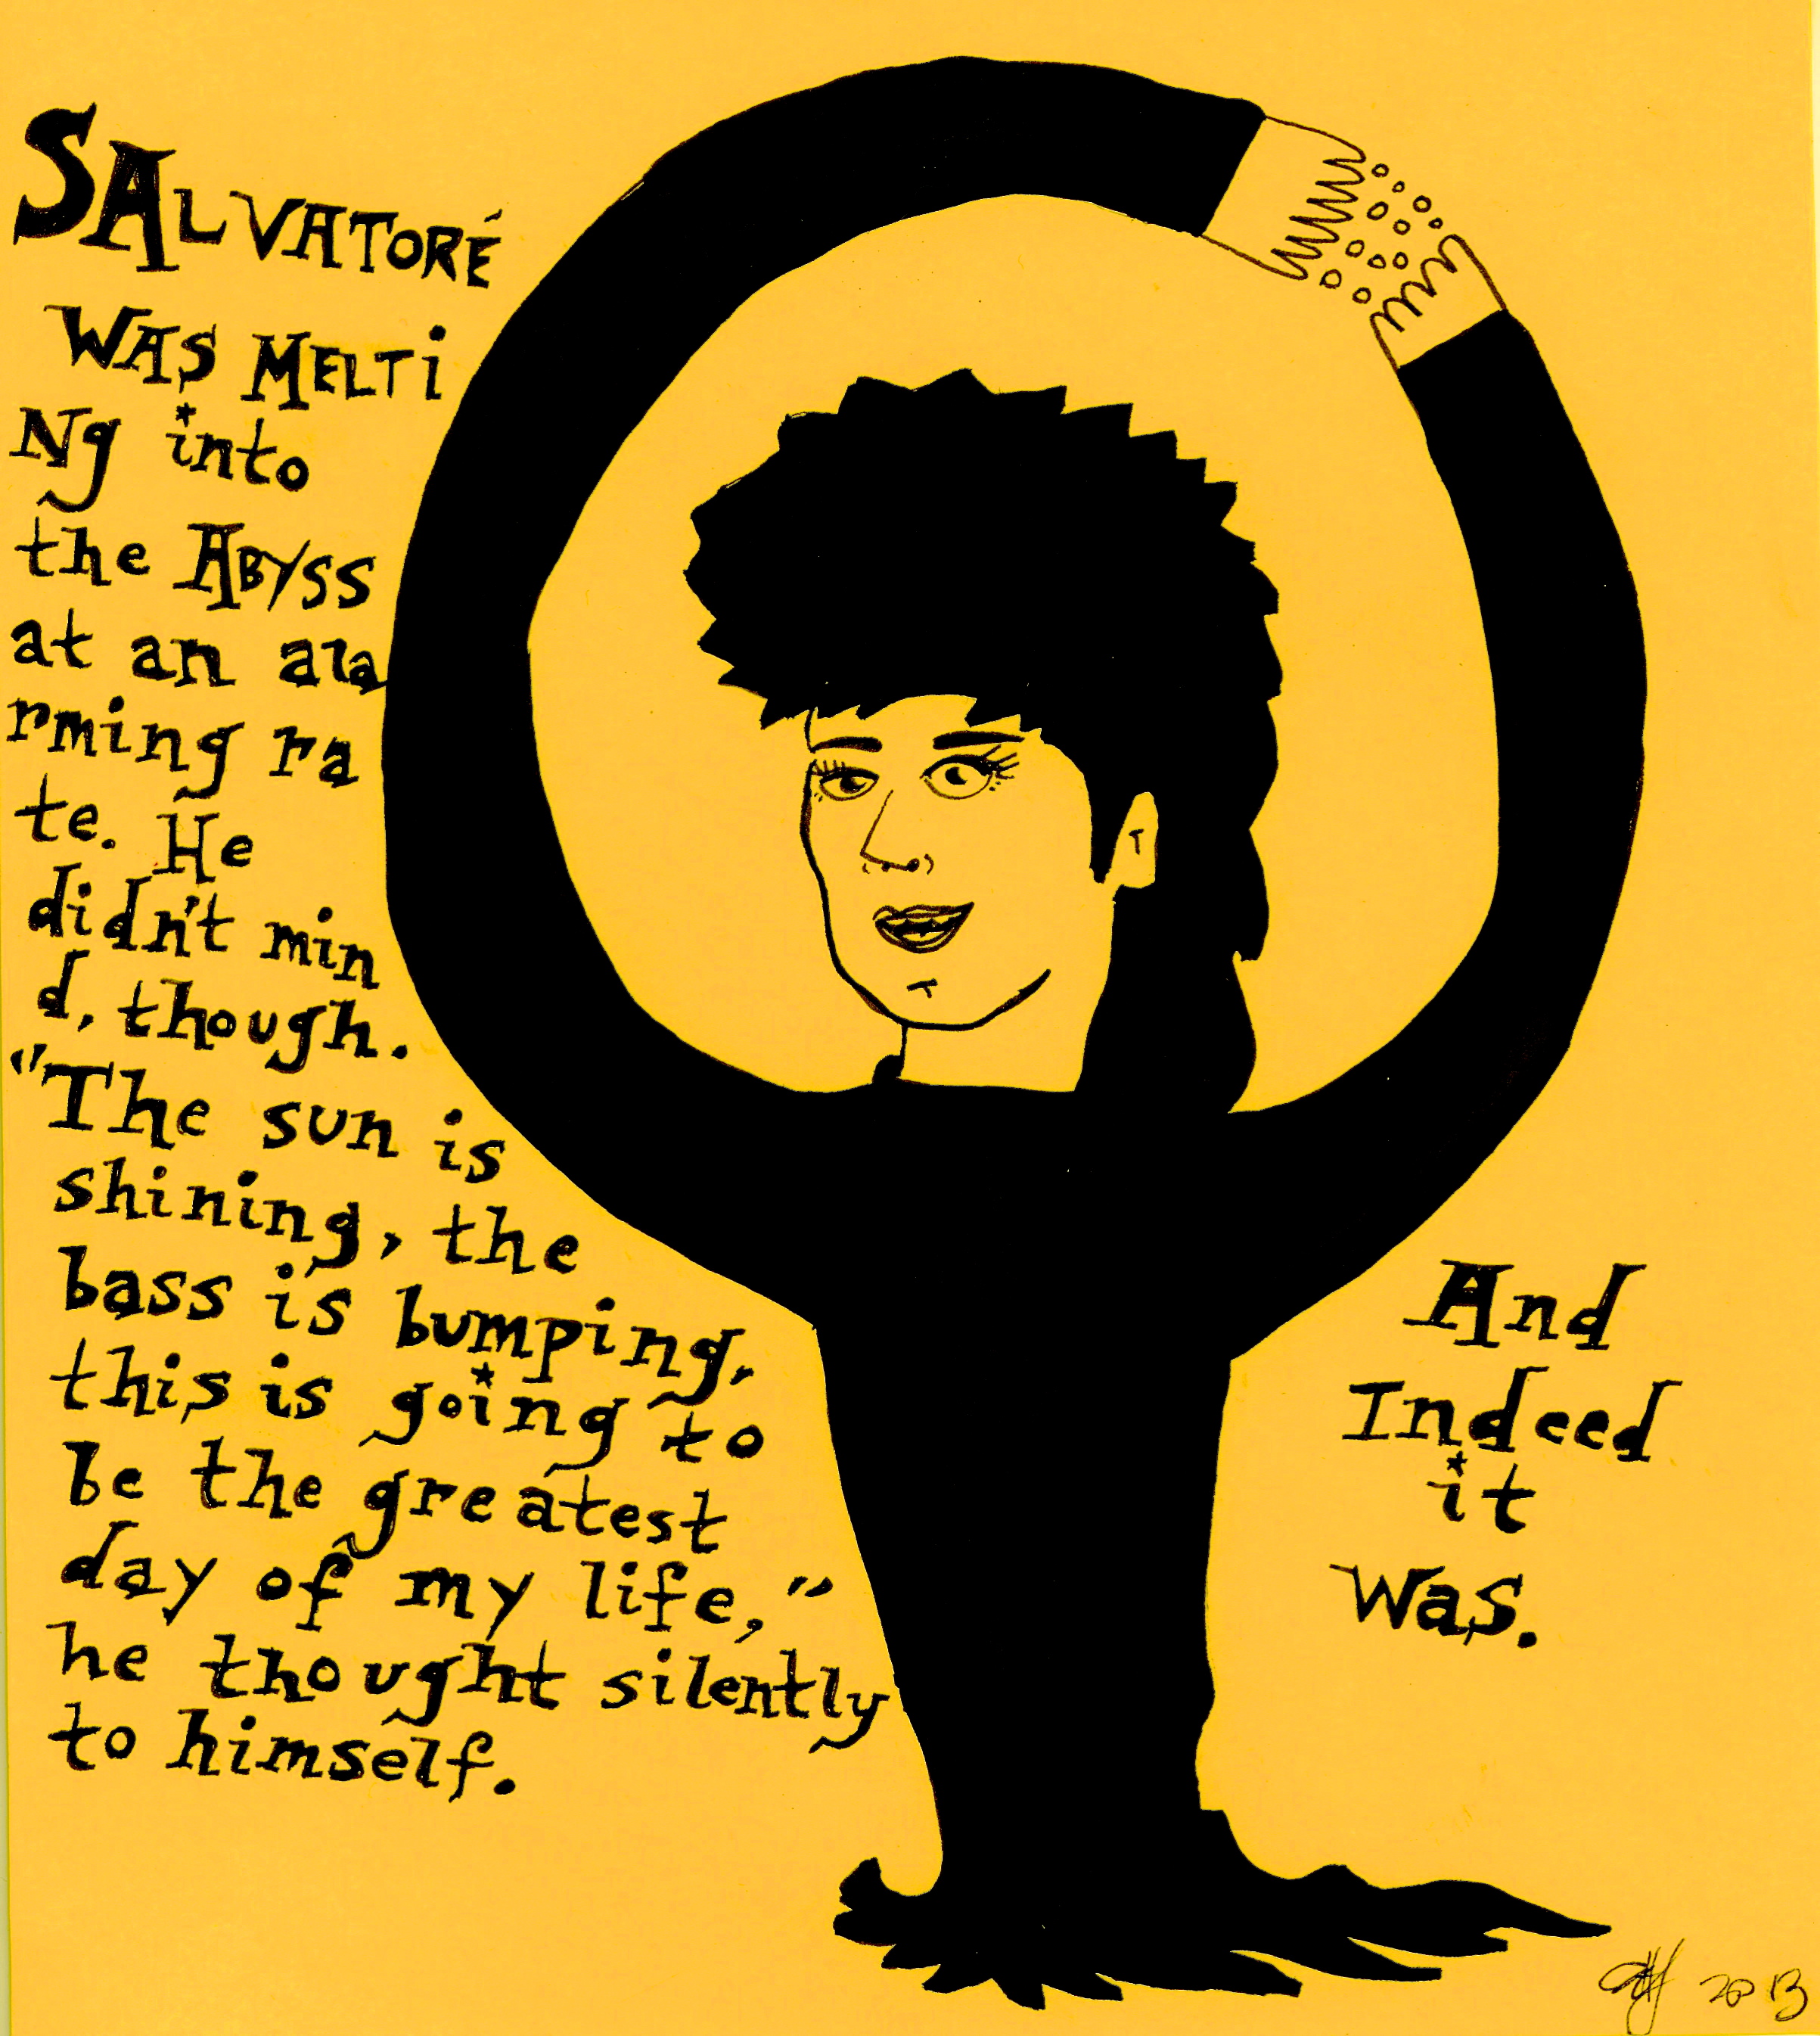 SALVATORÉ
WAS MELTi
Ng into
the ABYSS
at an ala
rming ra
te. He
didn't min
d, though.
"The sun is
shining, the
bass is bumping,
this is going to
be the greatest
day of my life,"
he thought silently
to himself.
And
Indeed
it
was.
2013